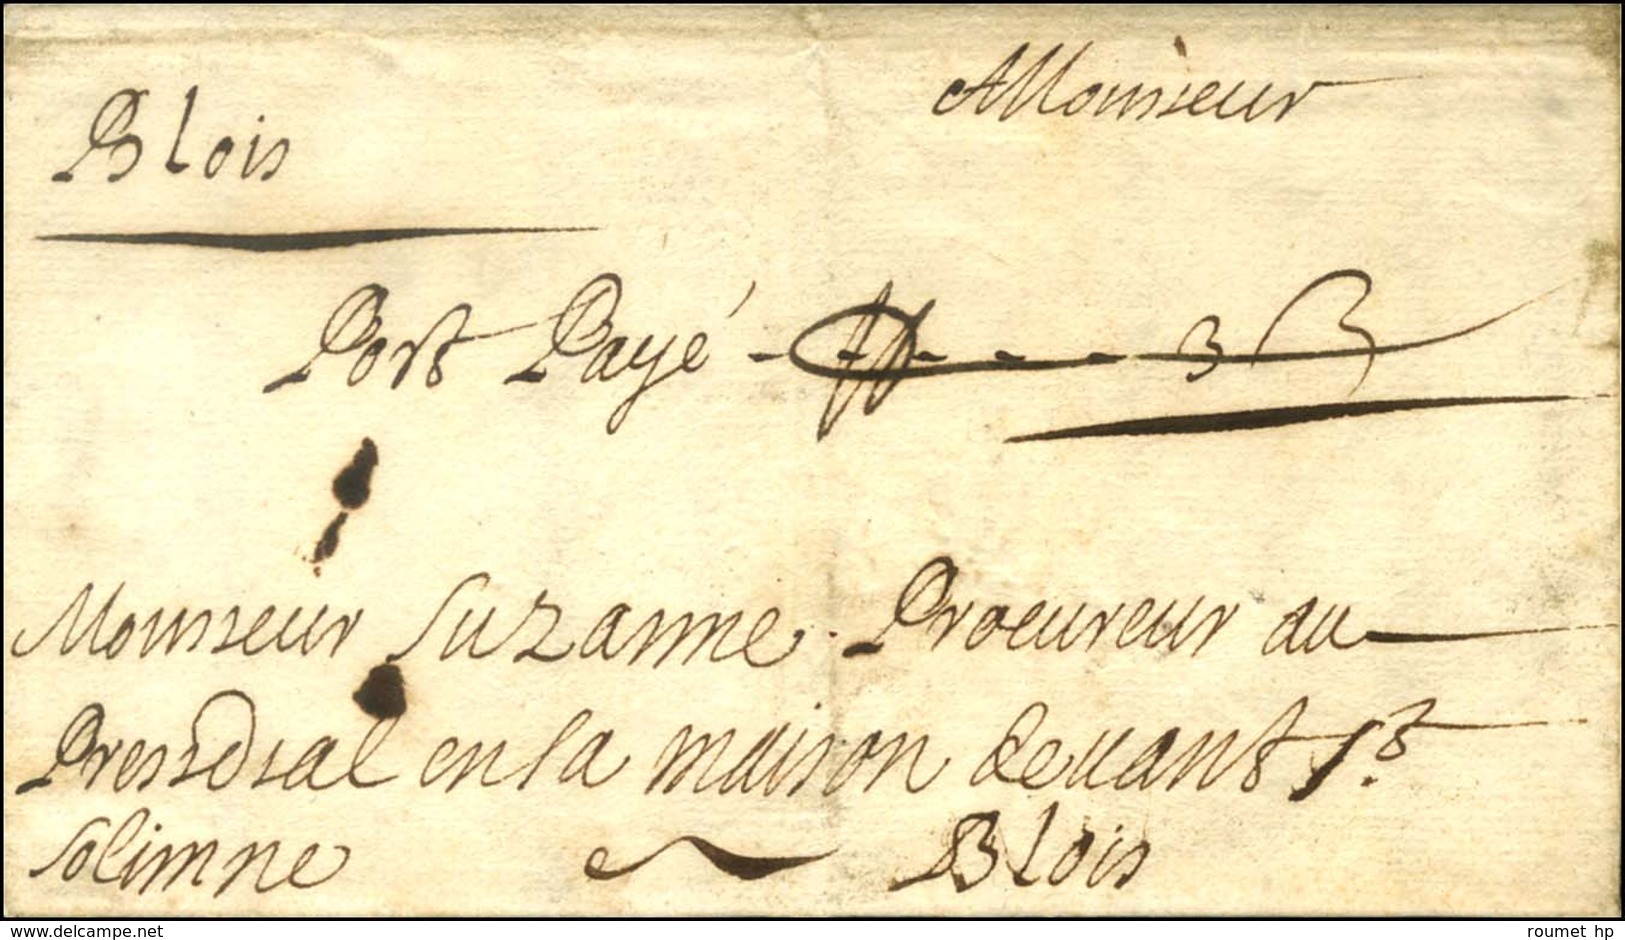 Blois
A Monsieur
Port Payé 3 3
Monsieur Suzanne Procureur au
Pressidial en la maison deuant St.
Solimne Blois
www.delcampe.net
roumet hp